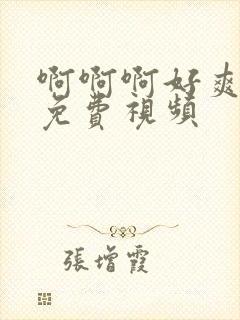 啊啊啊好爽
免費視頻
張增霞